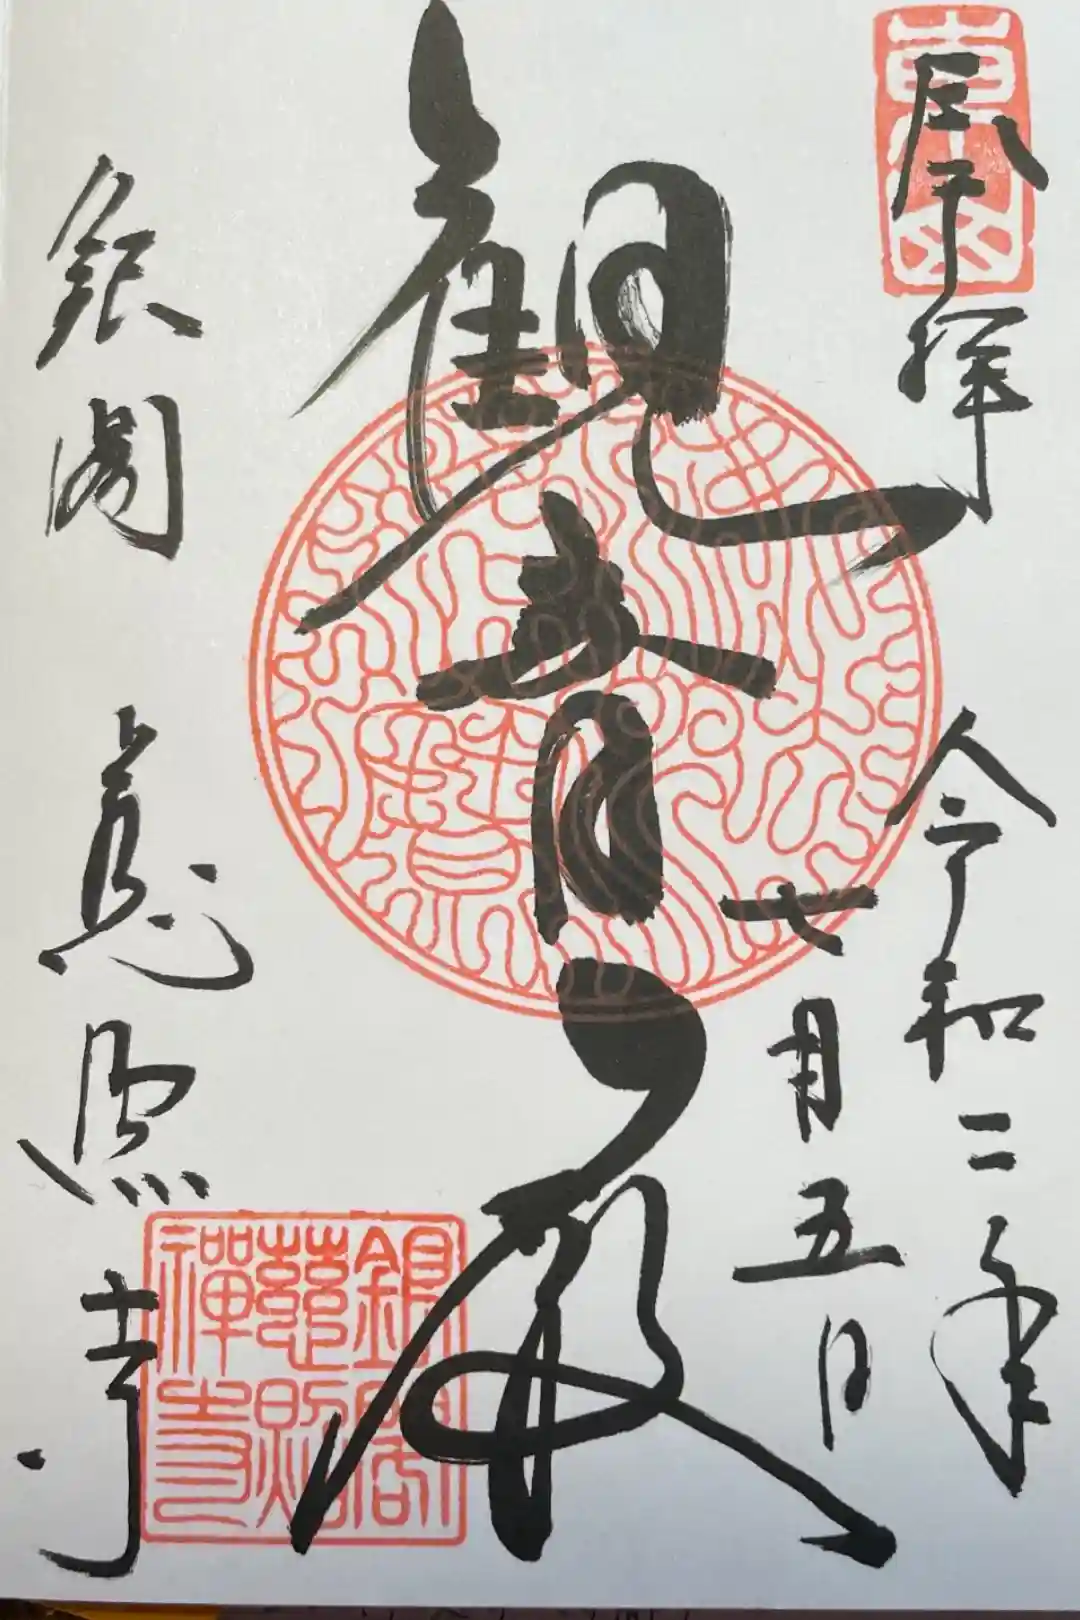 奉拝
令和二年
七月五日
観音殿
銀閣
慈照寺
東山
銀閣
慈照
禅寺